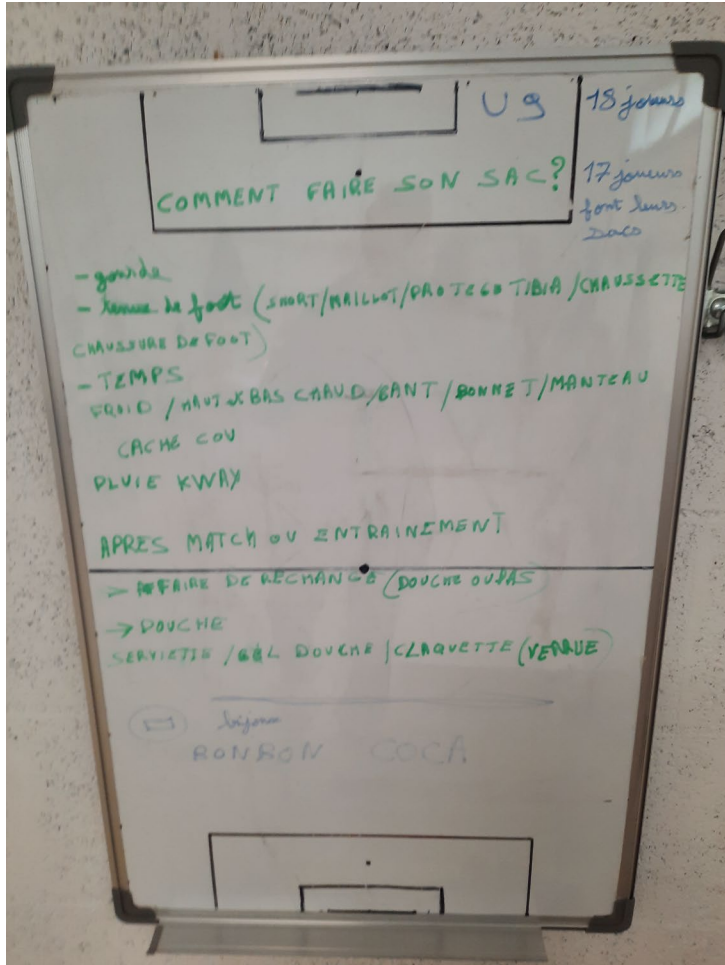 U9
18 joueurs
COMMENT FAIRE SON SAC?
17 joueurs
font leurs
sacs
- gourde
- tenue de foot (SHORT/MAILLOT/PROTEGE TIBIA/CHAUSSETTE
CHAUSSURE DE FOOT)
- TEMPS
FROID / HAUT & BAS CHAUD/GANT/BONNET/MANTEAU
CACHE COU
PLUIE KWAY
APRES MATCH OU ENTRAINEMENT
> AFFAIRE DE RECHANGE (DOUCHE OU PAS)
→ DOUCHE
SERVIETTE / GEL DOUCHE / CLAQUETTE (VERRUE)
bijoux
BONBON COCA